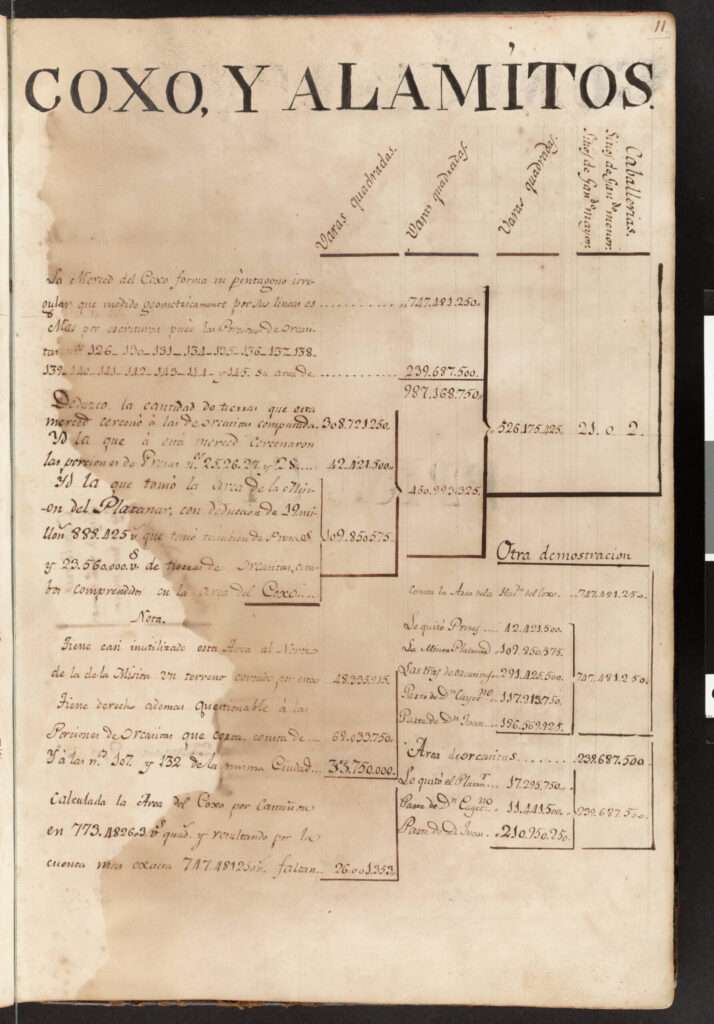 11
COXO, Y ALAMÍTOS.
Varas quadradas.
Varas quadradas.
Varas quadradas.
Sitios de Gan.do mayor.
Sitios de Gan.do menor.
Caballerias.
La Merced del Coxo forma un pentagono irre-
gular que medido geometricamente por sus lineas es .......... 747.481.250.
Mas por escrituras pues las Porcion.s de Orcasi-
tas n.os 126_130_131_134_135_136_137_138.
139_140_141_142_143_144 y 145. su area de 239.687.500.
987.168.750.
Deduzco la cantidad de tierras que esta
merced cercenó á las de Orcasitas computada 308.721.250.
Yd la que á esta merced cercenaron
las porciones de Presas n.os 25.26.27. y 28 .... 42.421.500.
526.175.425. 21. 0. 2.
Yd la que tomó la Area de la Mi-
on del Platanar, con deduccion de 19 mi-
llon.s 885.425 v.s que tomó tambien de Presas
y 23.560.000. v.s de tierras de Orcasitas, am-
bos comprendidos en la Area del Coxo 109.850.575.
460.993.325.
Nota.
Tiene casi inutilizado esta Area al Norte
de la de la Mision un terreno cortado por esta 48.335.915.
Tiene derecho ademas questionable á las
Porciones de Orcasitas que consta de 69.033.750.
Y á las n.os 107. y 132 de la misma Ciudad ... 33.750.000.
Calculada la Area del Coxo por
en 773.482603. v.s quad. y resultando por la
cuenta mas exacta 747.481250 v.s faltan .. 26.001.353.
Otra demostracion
Consta la Area de la Had.a del Coxo .. 747.481.250.
Le quitó Presas .... 42.421.500.
La Mision Platanar 109.850.575.
Las trras de Orcasitas 291.425.500.
Parte de Dn Cayet.no 117.213.750.
Parte de Dn Juan .. 186.569.925.
747.481.250
Area de Orcasitas ...... 239.687.500.
Le quitó el Platan.r 17.295.750.
Parte de Dn Cayet.no 11.441.500.
Parte de Dn Juan .. 210.950.250.
239.687.500.